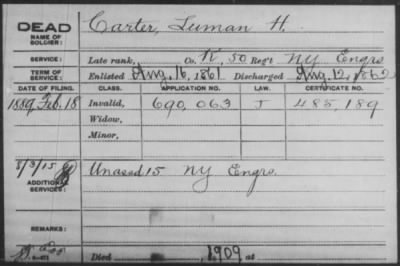 DEAD
NAME OF SOLDIER: Carter, Luman H.
SERVICE: Late rank, Co. K, 50 Reg't NY Engrs
TERM OF SERVICE: Enlisted Aug. 16, 1861 Discharged Aug. 12, 1862
DATE OF FILING. CLASS. APPLICATION NO. LAW. CERTIFICATE NO.
1889 Feb. 18 Invalid, 690,063 J 485,189
Widow,
Minor,
8/3/15
ADDITIONAL SERVICES: Unassd 15 NY Engrs.
REMARKS:
Died 1909 at